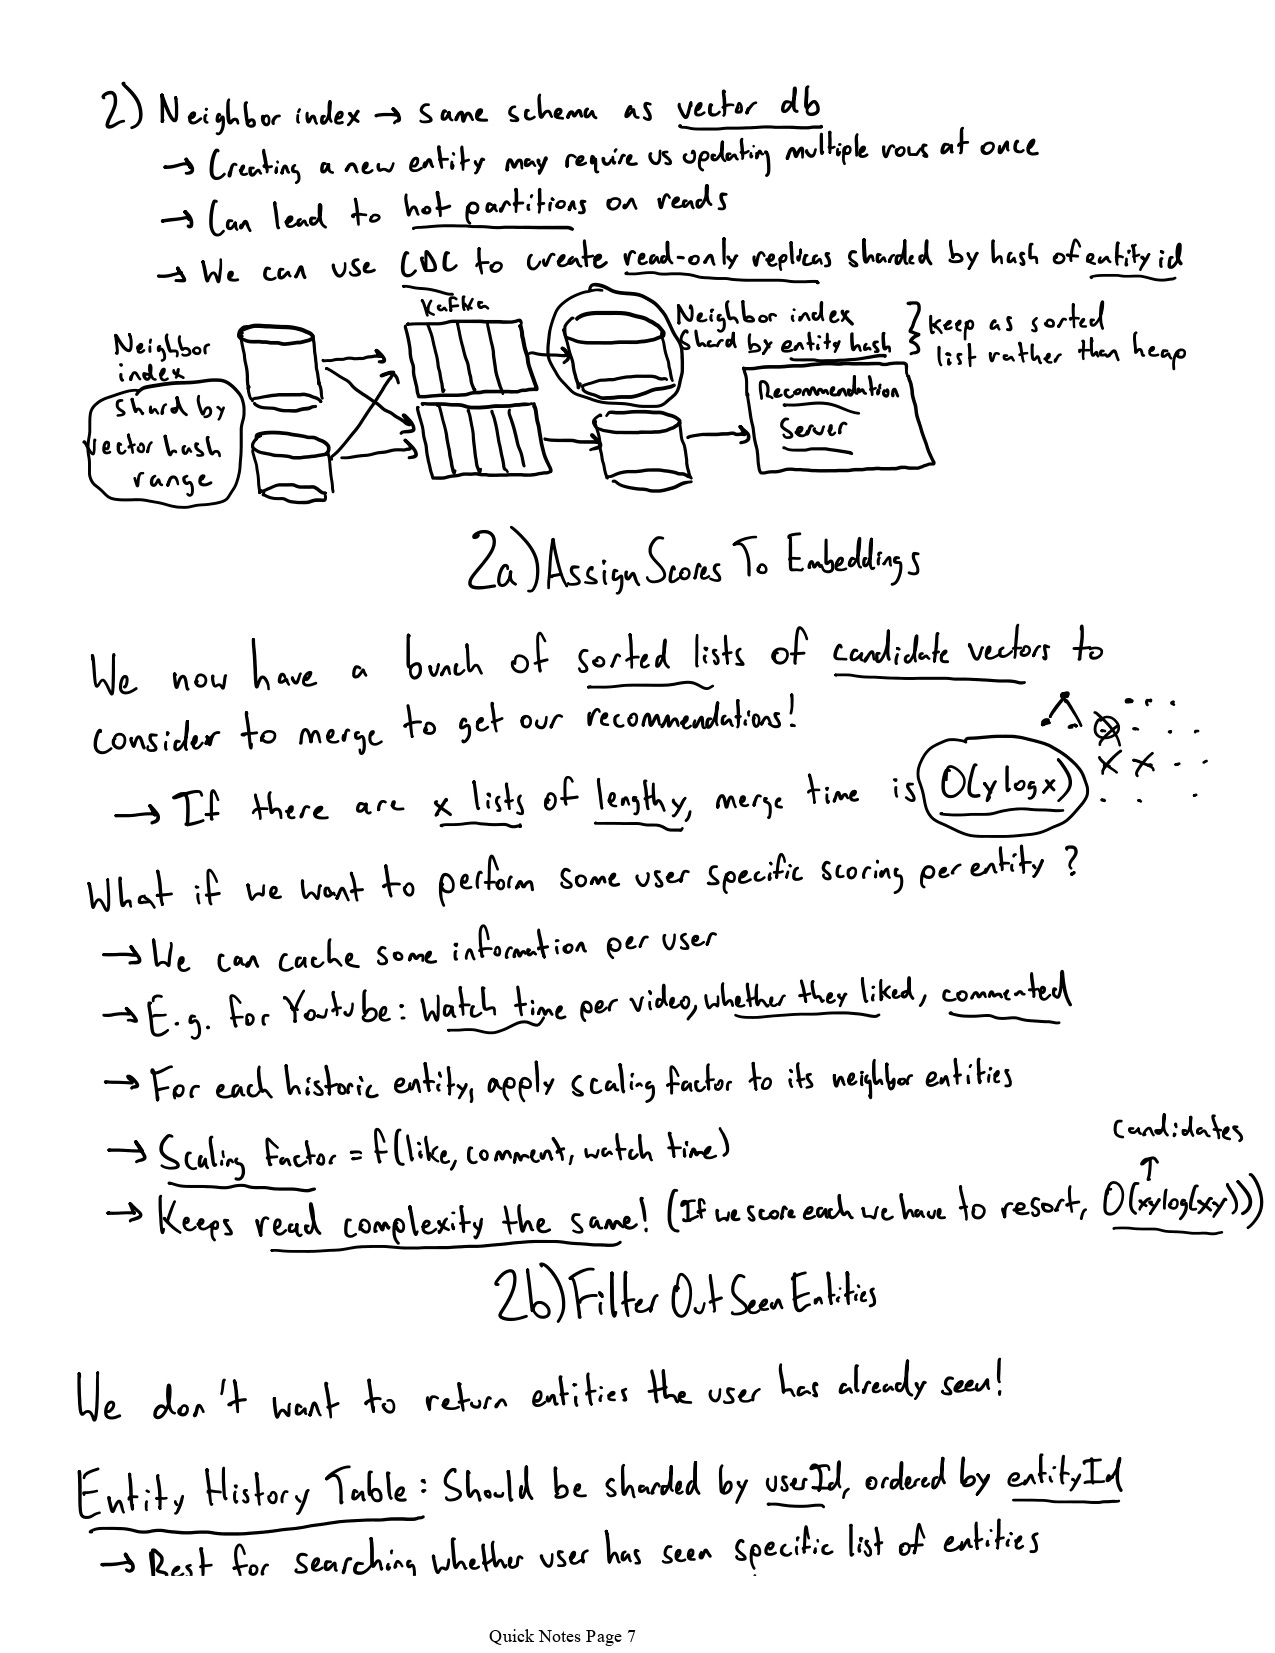 2) Neighbor index → same schema as vector db
→ Creating a new entity may require us updating multiple rows at once
→ Can lead to hot partitions on reads
→ We can use CDC to create read-only replicas sharded by hash of entity id
Kafka
Neighbor index
shard by entity hash
keep as sorted
list rather than heap
Neighbor
index
shard by
vector hash
range
Recommendation
Server
2a) Assign Scores To Embeddings
We now have a bunch of sorted lists of candidate vectors to
consider to merge to get our recommendations!
→ If there are x lists of length y, merge time is O(y log x)
What if we want to perform some user specific scoring per entity?
→ We can cache some information per user
→ E.g. for Youtube: Watch time per video, whether they liked, commented
→ For each historic entity, apply scaling factor to its neighbor entities
→ Scaling factor = f(like, comment, watch time)
candidates
↑
→ Keeps read complexity the same! (If we score each we have to resort, O(xy log(xy)))
2b) Filter Out Seen Entities
We don't want to return entities the user has already seen!
Entity History Table: Should be sharded by userId, ordered by entityId
→ Best for searching whether user has seen specific list of entities
Quick Notes Page 7